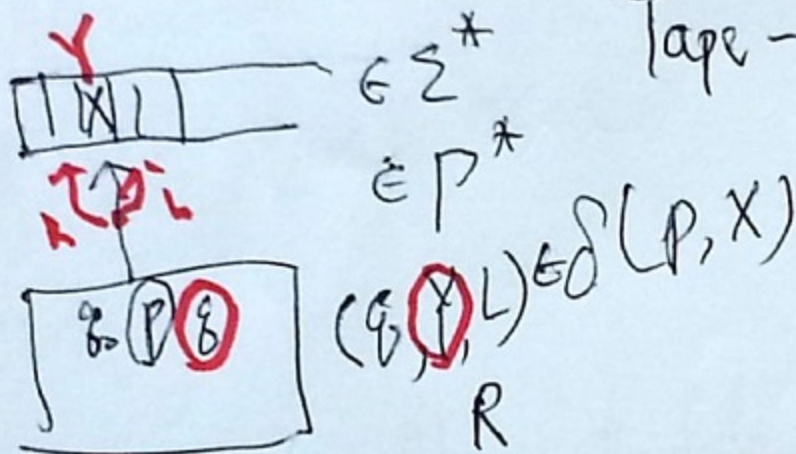 Y
Tape -
X
∈ Σ*
∈ Γ*
R L
q₀ p q (q, Y, L) ∈ δ(p, X)
R